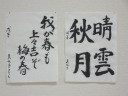 我が春も
上々吉ぞ
梅の春
晴雲
秋月